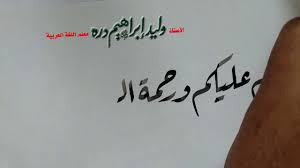 الأستاذ وليد إبراهيم دره معلم اللغة العربية
م عليكم ورحمة ال